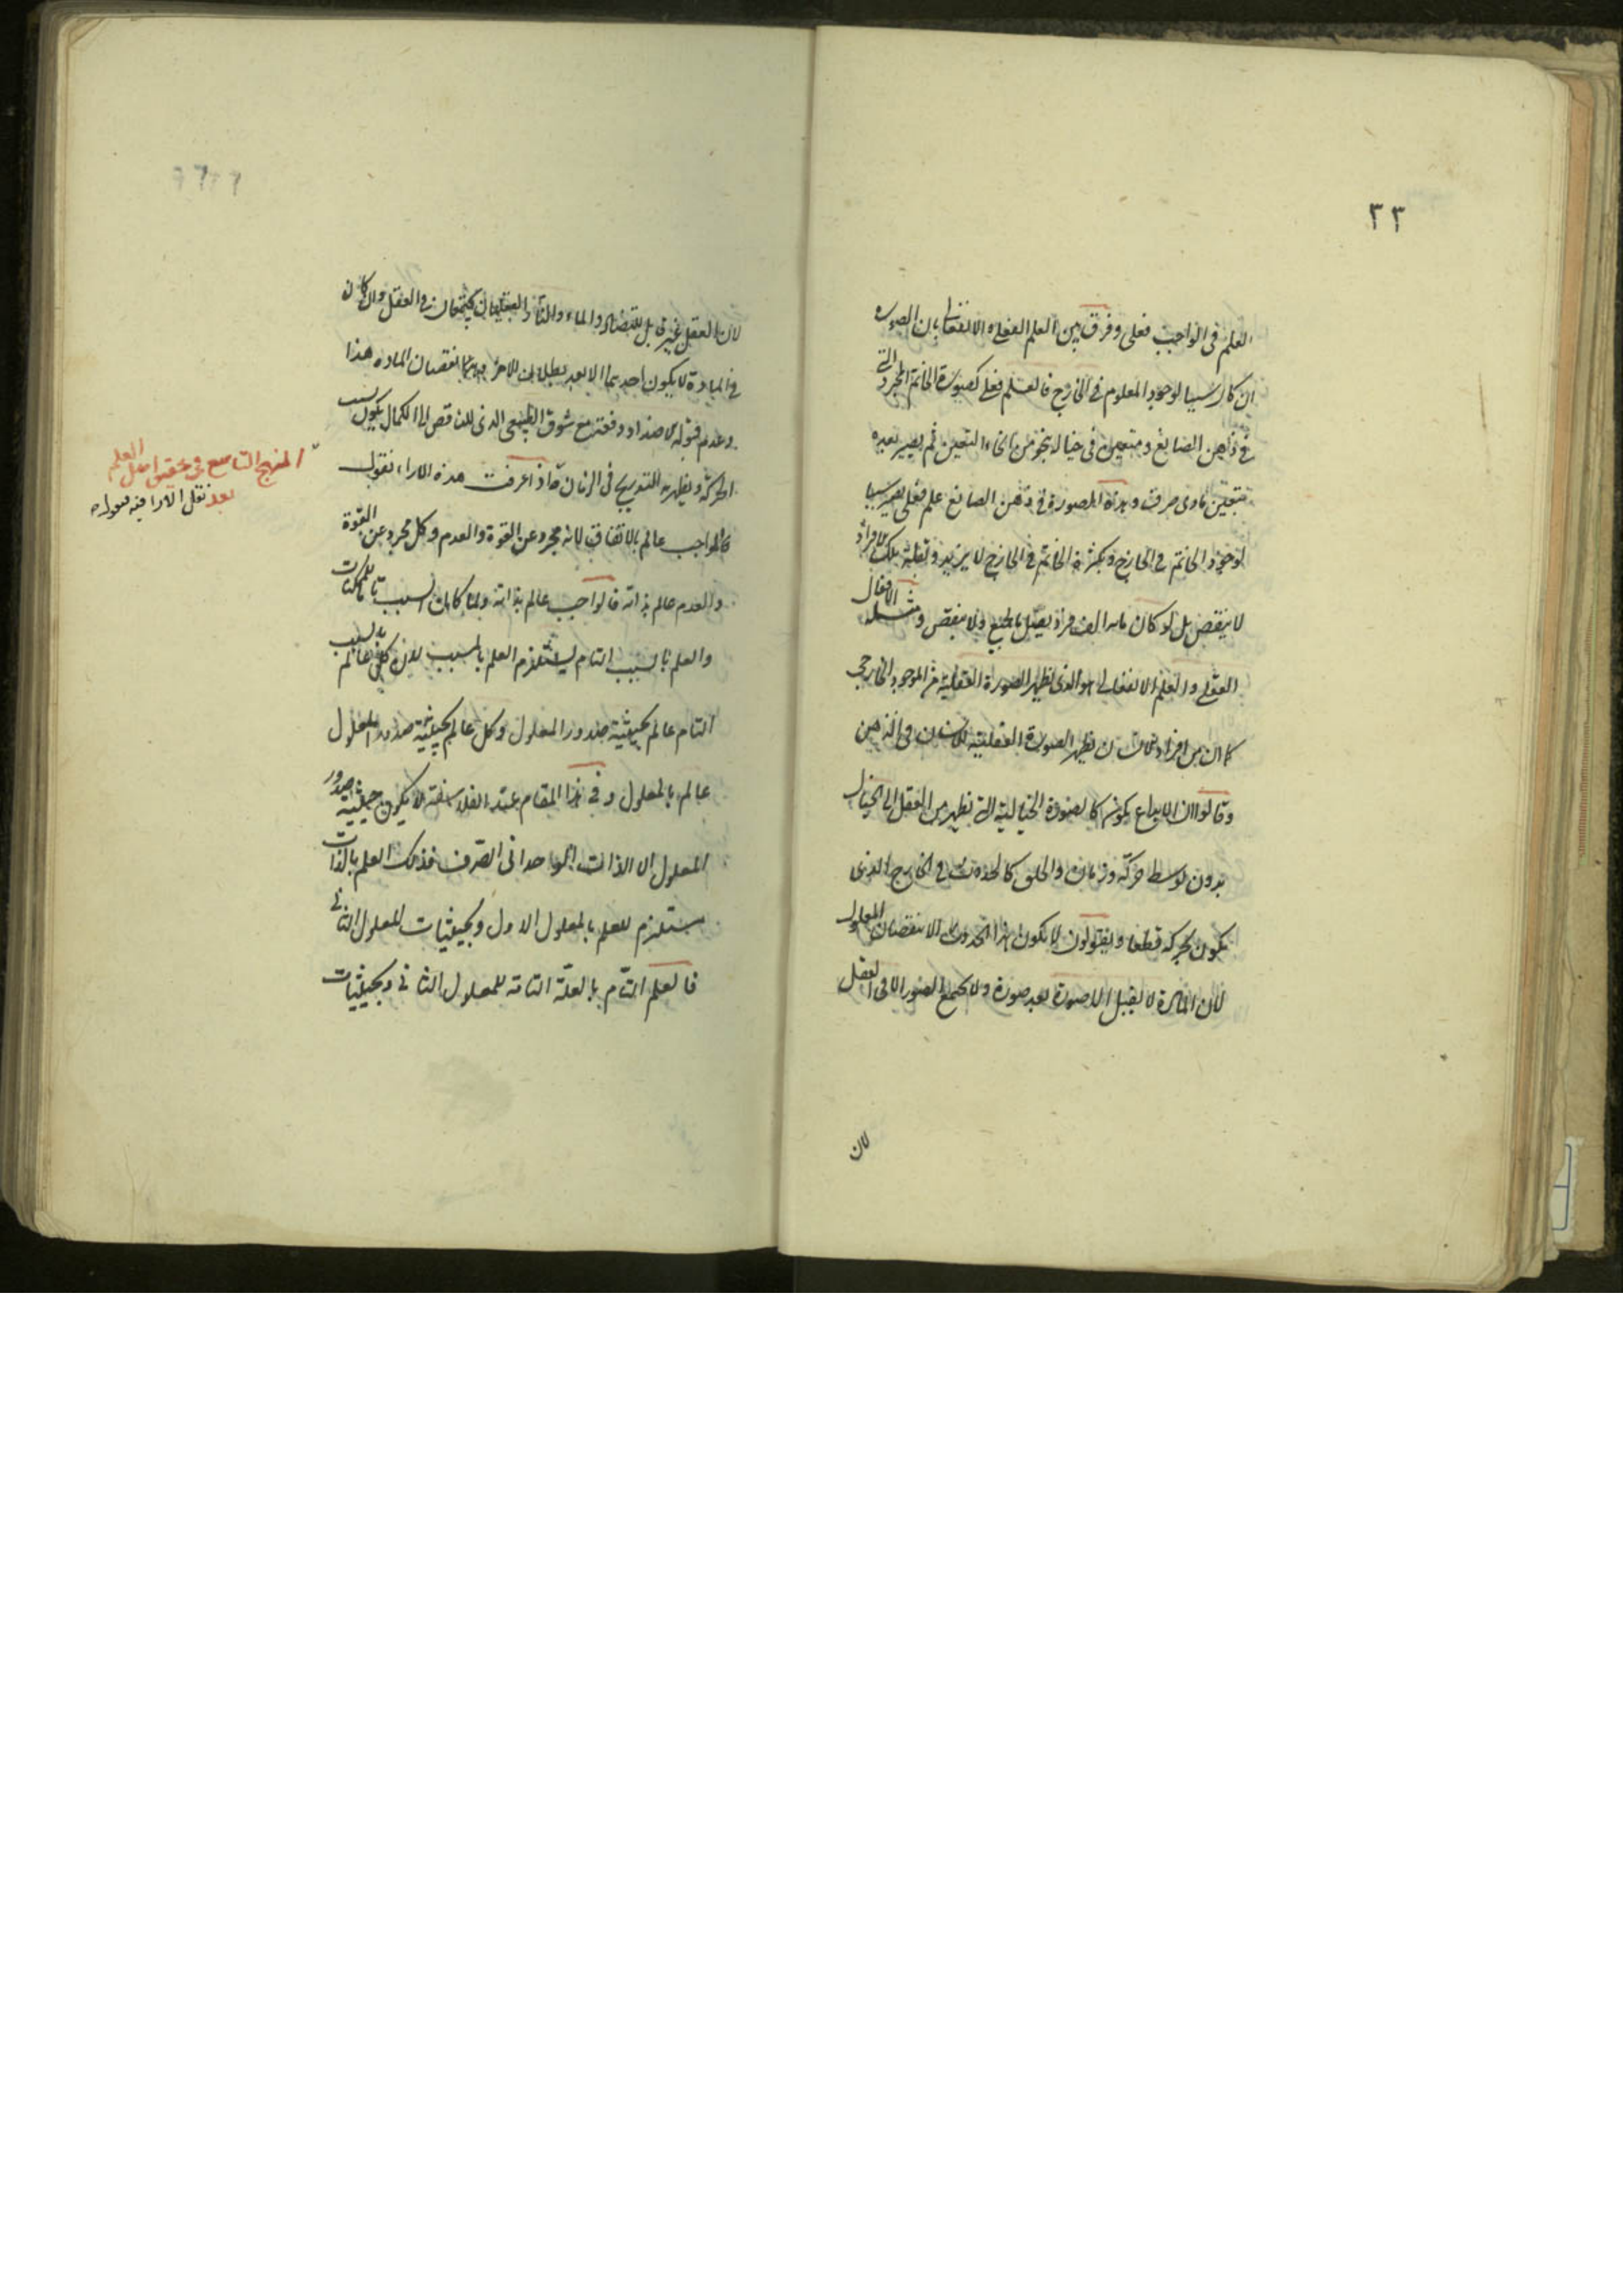 ٣٣
العلم فى الواجب فعلى وفرق بين العلم الفعلى والانفعالى بان الصورة
ان كان سببا لوجود المعلوم فى الخارج فالعلم فعلى كصورة الخاتم المجرد التى
فى ذهن الصانع ومتعين فى خياله بنحو من انحاء التعين ثم يصير بعده
متعين مادى صرف وهذه الصورة فى ذهن الصانع علم فعلى يصير سببا
لوجود الخاتم فى الخارج وبكثرة الخاتم فى الخارج لا يزيد وبقلة تلك الافراد
لا ينقص بل لو كان مائة الف فرد يقبل بالطبع ولا ينقص ومثله الافعال
العقلى والعلم الانفعالى هو الذى تظهر الصورة العقلية من الموجود الخارجى
كما ان من افراد الانسان تظهر الصورة العقلية للانسان فى الذهن
وقالوا ان الابداع يكون كالصورة الخيالية التى تظهر من العقل الى الخيال
بدون توسط حركة وزمان والخلق كالحدوث فى الخارج الذى
يكون بحركة قطعا ويقولون لا يكون هذا الحدوث الا لنقصان المعلول
لان المادة لا يقبل الا صورة بعد صورة ولا يجتمع الصور الا فى العقل
لان
لان العقل غير قابل للتضاد والماء والنار العقليان يجتمعان فى العقل وان كان
فى المادة لا يكون احديهما الا بعد بطلان الاخر بنقصان المادة هذا
وعدم قبوله الاضداد دفعة مع شوق الطبيعى الذى للناقص الى الكمال يكون بسبب
الحركة ويظهر بالتدريج فى الزمان واذا عرفت هذه الاراء نقول
فالواجب عالم بالاتفاق لانه مجرد عن القوة والعدم وكل مجرد عن القوة
والعدم عالم بذاته فالواجب عالم بذاته ولما كان السبب تام للممكنات
والعلم بالسبب التام يستلزم العلم بالمسبب لان كل عالم بالسبب
التام عالم بحيثية صدور المعلول وكل عالم بحيثية صدور المعلول
عالم بالمعلول وفى هذا المقام عند الفلاسفة لا يكون حيثية صدور
المعلول الا الذات الواحدانى الصرف فذلك العلم بالذات
يستلزم للعلم بالمعلول الاول وبحيثيات المعلول الثانى
فالعلم التام بالعلة التامة للمعلول الثانى وبحيثيات
المنهج التاسع فى تحقيق اصل العلم
بعد نقل الارا فيه